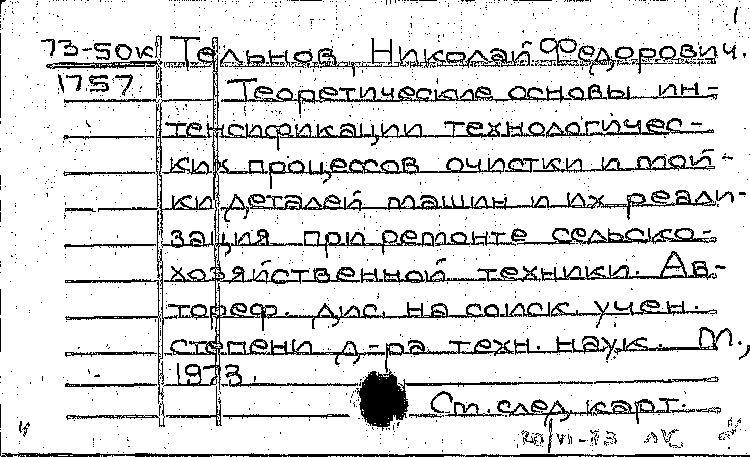 1
73-50к Тельнов, Николай Федорович.
1757 Теоретические основы ин-
тенсификации технологичес-
ких процессов очистки и мой-
ки деталей машин и их реали-
зация при ремонте сельско-
хозяйственной техники. Ав-
тореф. дис. на соиск. учен.
степени д-ра техн. наук. М.,
1973.
См. след. карт.
20/VI-73